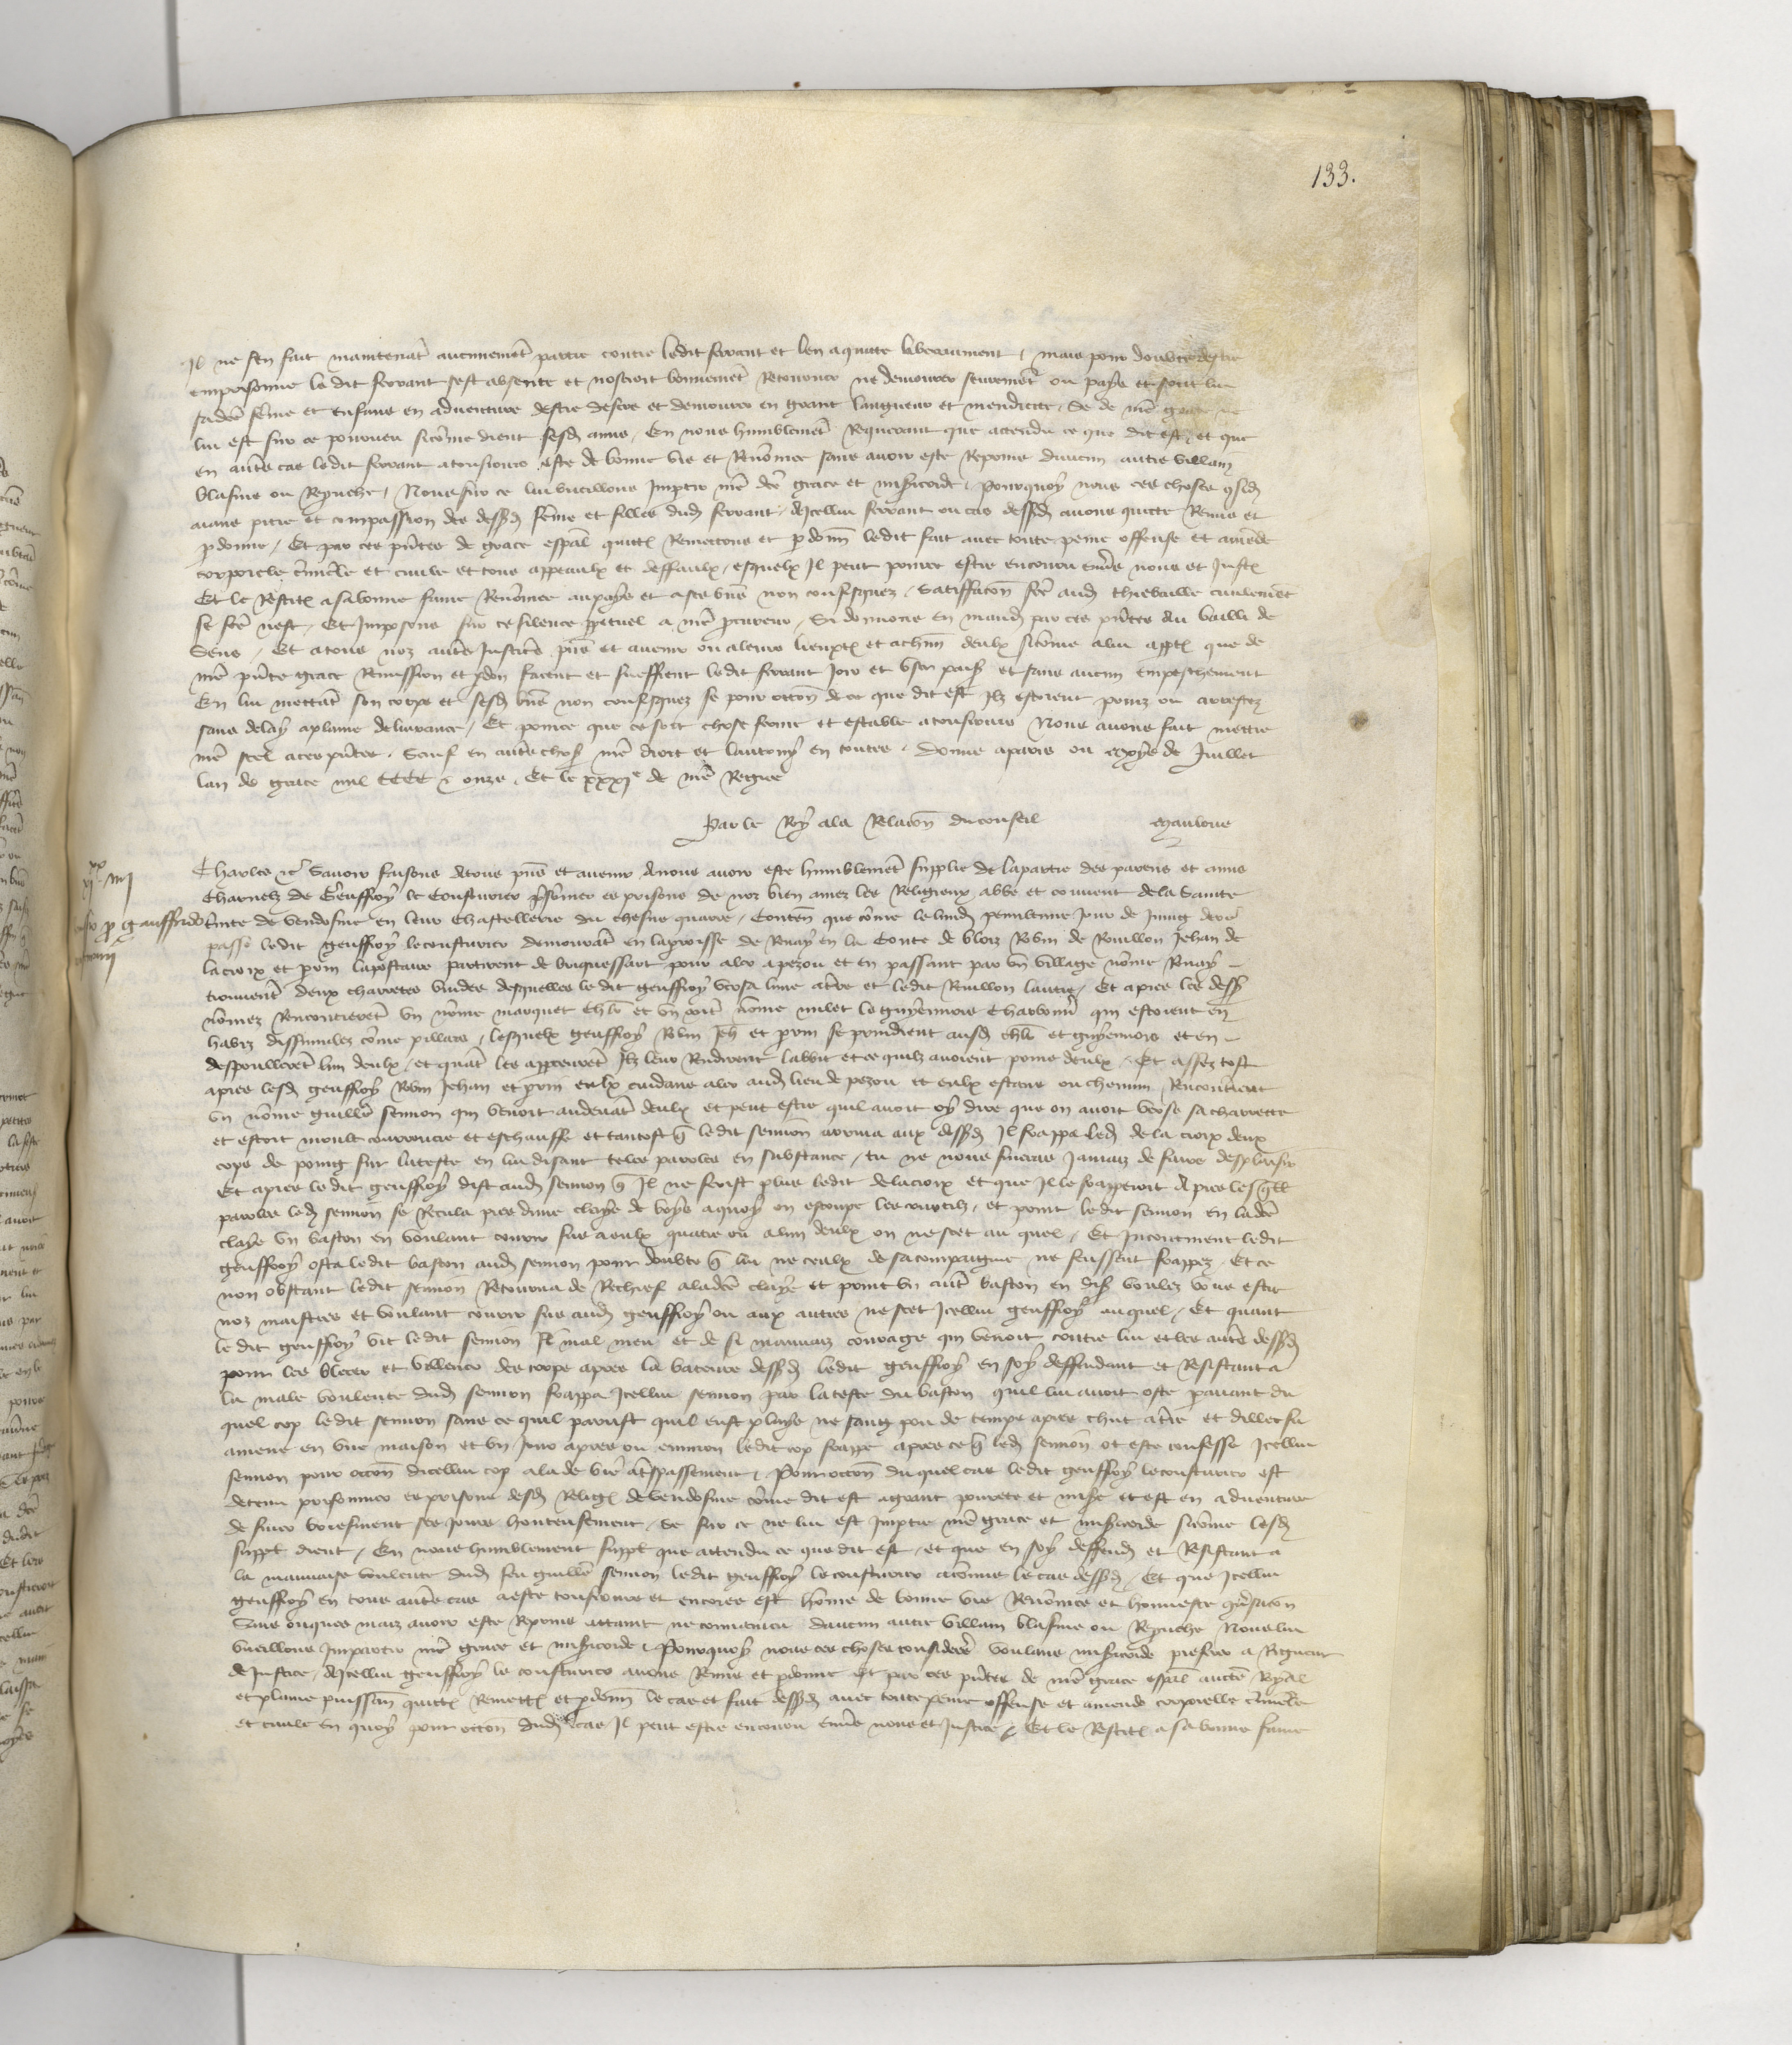 133.
Il ne sen fait maintenāt aucunemēt partie contre ledit servant et len a quitte liberaument, mais pour doubte destre
emprisonne le dit servant sest absente et noseroit bonnemēt retourner ne demourer seuremēt ou pays et sont lui
sadcē fēme et enfans en adventure destre desers et demourer en grant langueur et mendicite, se de nrē grace ne
lui est sur ce pourveu sicōme dient sesd amis, En nous humblemēt requerant que attendu ce que dit est, et que
en autrēs cas ledit servant a tousiours este de bonne vie et renōmee sans avoir este repris daucun autre villain
blasme ou reprouche, Nous sur ce lui vueillons impartir nrē dcē grace et misericorde, Pourquoy nous ces choses 9sid
aians pitie et compassion des dessd fēme et filles dud servant, A icellui servant ou cas dessd avons quicte remis et
pdonne, Et par ces pñtes de grace espāl quictons remettons et pdonnons ledit fait avec toute peine offense et amēde
corporele crimīele et civile et tous appeaulx et deffaulx, esquelx il peut pour ce estre encouru envers nous et justice
Et le restit a sa bonne fame renōmee au pays et a ses biēs non confisquez, Satiffacōn fcē aud thiebaille civilemēt
se fcē nest, Et imposons sur ce silence ppetuel a nrē pcureur, Si donnons en mand par ces pñtes au bailli de
Sens, Et a tous noz autrēs justicrs pñs et avenir ou a leurs lieuxtē et a chūn deulx sicōme a lui apptē que de
nrē pñte grace remission et pdon facent et sueffrent ledit servant joir et user paisiblemēt et sans aucun empeschement
En lui mettāt son corps et sesd biēs non confisquez se pour occōn de ce que dit est ilz estoient prins ou arrestez
sans delay a plaine delivrance, Et pource que ce soit chose ferme et estable a tousiours Nous avons fait mettre
nrē scel a ces pñtes, Sauf en autrēs choses nrē droit et lautruy en toutes, Donne a paris ou moys de Juillet
lan de grace mil CCCC & onze, Et le xxxje de nrē regne
Par le Roy a la relacōn du conseil
Charles &c Savoir faisons a tous pñs et avenir a nous avoir este humblemēt supplie de la partie des parens et amis
charnelz de Geuffroy le cousturier prisonnier es prisons de noz bien amez les religieux abbe et couvent de la Saincte
trinite de vendosme en leur chastellerie du chesne quarre, Contenant que cōme le lundi penultieme jour de juing derr
passe ledit geuffroy le cousturier demourāt en la paroisse de Ruay en la conte de blois Robin de Rouillon Jehan de
la croix et prin lapostaire partirent de briquessart pour aler a pezou et en passant par un village nōme Ruay
trouverent deux charretes vuides desquelles le dit geuffroy versa lune a terre et ledit Ruillon lautre, Et apres les dess
nōmez rencontrerēt un nōme marquet Ehlē et un autrē nōme milet le guyennois charbonnier qui estoient en
habiz dissimulez cōme pillars, lesquelx geuffroy Robin Jeh et prin se prindrent ausd Ehlē et guyennois et en
despoullerēt lun deulx, et quāt les apperceurēt ilz leur rendirent labbit et ce quilz avoient prins deulx, Et assez tost
apres lesd geuffroy Robin Jehan et prin eulx cuidans aler aud lieu de pezou et eulx estans ou chemin rencontrerent
un nōme guillē semion qui venoit audevāt deulx et peut estre quil avoit oy dire que on avoit verse sa charrette
et estoit moult courroucie et eschauffe et tantost q ledit semion arriva aux dessd il frappa led de la croix deux
cops de poing sur la teste en lui disant teles paroles en substance, tu ne nous fineras jamaiz de faire desplaisir
Et apres ledit geuffroy dist aud semion q il ne ferist plus ledit de la croix et que il le frapperoit Apres lesquelles
paroles led semion se recula pres dune claye de boys a quoy on estoupe les courtilz, et print ledit semion en ladcē
claye un baston en voulant courir sus a eulx quatre ou a lun deulx on ne scet au quel, Et incontinent ledit
geuffroy osta ledit baston aud semion pour doubte q lui ne ceulx de sa compaignie ne feussent frappez, Et ce
non obstant ledit semion retourna de rechief a ladcē claye et print un autrē baston en disant voulez vous estre
noz maistres et voulant courir sus aud geuffroy ou aux autres ne scet icellui geuffroy auquel, Et quant
le dit geuffroy vit ledit semion si mal meu et de si mauvaiz courage qui venoit contre lui et les autrēs dessd
pour les blecer et villener des cops apres la bateure dessd ledit geuffroy en soy deffendant et resistant a
la male voulente dud semion frappa icellui semion par la teste du baston quil lui avoit oste pavant du
quel cop ledit semion sans ce quil parust quil eust playe ne sang pou de temps apres chut a terre et dillec fu
amene en une maison et un jour apres ou environ ledit cop frappe apres ce q led semion ot este confesse icellui
semion pour occōn dicellui cop ala de vie a trespassement, Pour occōn du quel cas ledit geuffroy le cousturier est
detenu prisonnier es prisons desd relig de vendosme cōme dit est a grant povrete et misere et est en adventure
de finer briefment ses jours honteusement, se sur ce ne lui est impartie nrē grace et misericorde sicōme lesd
suppl dient, En nous humblement suppl que attendu ce que dit est, et que en soy deffend et resistant a
la mauvaise voulente dud feu guillē semion ledit geuffroy le cousturier a cōmis le cas dessd, Et que icellui
geuffroy en tous autrēs cas a este tousiours et encores est hōme de bonne vie renōmee et honneste 9versacōn
Sans onques maiz avoir este repris attaint ne convaincu daucun autre villain blasme ou reprouche Nous lui
vueillons impartir nrē grace et misericorde, Pourquoy nous ces choses considerēs voulans misericorde preferer a rigueur
de justice, A icellui geuffroy le cousturier avons remis et pdonne et par ces pñtes de nrē grace espāl auctē royāl
et plaine puissance quictons remettons et pdonnons le cas et fait dessd avec toute peine offense et amende corporelle crimīele
et civile en quoy pour occōn dud cas il peut estre encouru envers nous et justice, Et le restit a sa bonne fame